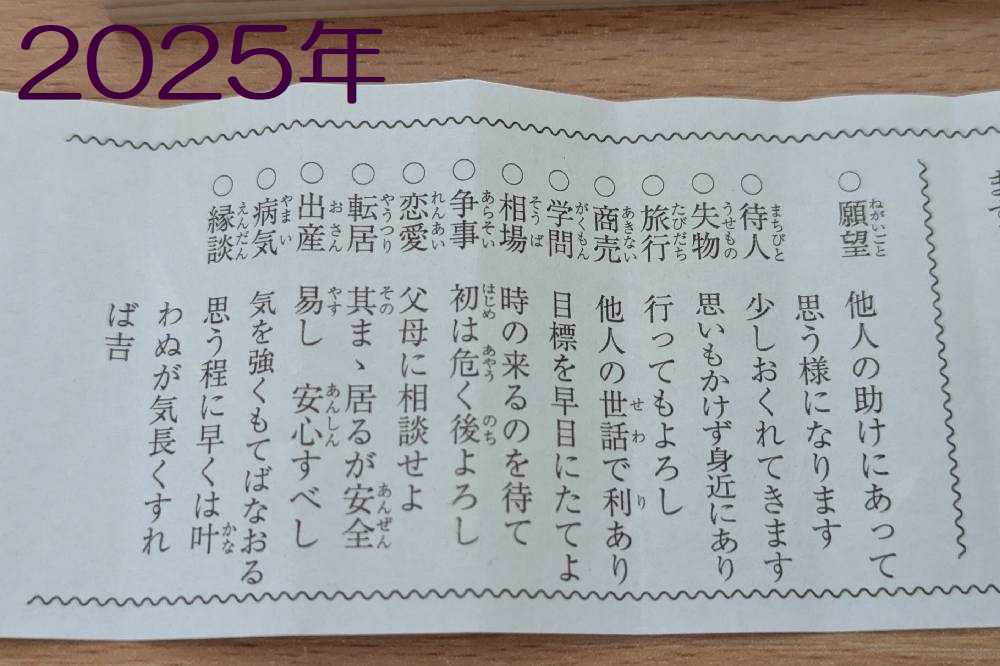 2025年
○願望 他人の助けにあって
思う様になります
○待人 少しおくれてきます
○失物 思いもかけず身近にあり
○旅行 行ってもよろし
○商売 他人の世話で利あり
○学問 目標を早目にたてよ
○相場 時の来るのを待て
○争事 初は危く後よろし
○恋愛 父母に相談せよ
○転居 其まゝ居るが安全
○出産 易し 安心すべし
○病気 気を強くもてばなおる
○縁談 思う程に早くは叶
わぬが気長くすれ
ば吉